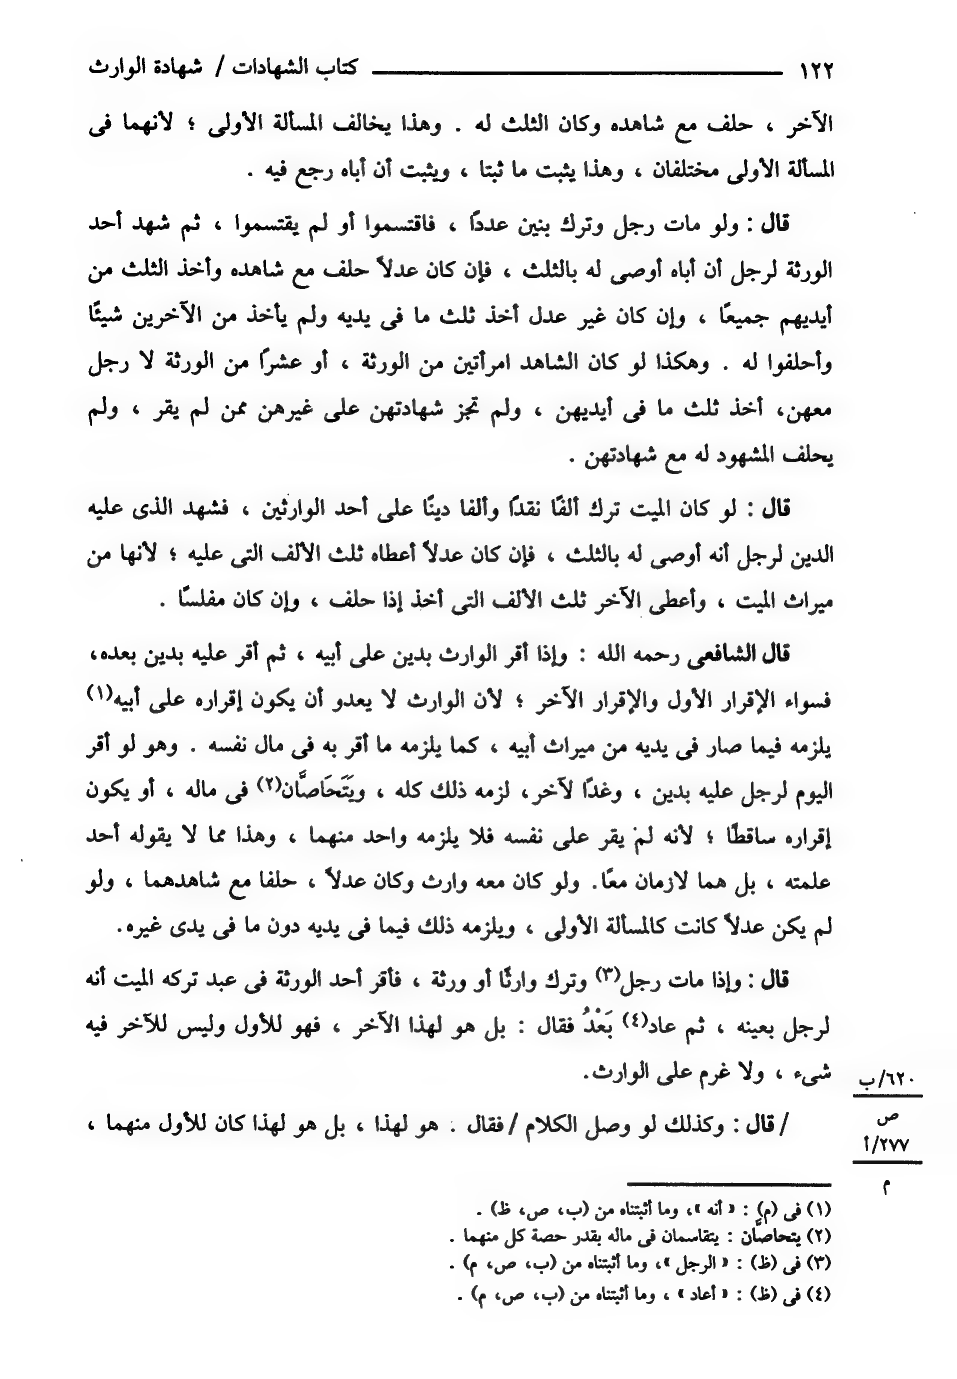 ١٢٢ ـــــــــــــــ كتاب الشهادات / شهادة الوارث
الآخر ، حلف مع شاهده وكان الثلث له . وهذا يخالف المسألة الأولى ؛ لأنهما فى
المسألة الأولى مختلفان ، وهذا يثبت ما ثبتا ، ويثبت أن أباه رجع فيه .
قال : ولو مات رجل وترك بنين عددًا ، فاقتسموا أو لم يقتسموا ، ثم شهد أحد
الورثة لرجل أن أباه أوصى له بالثلث ، فإن كان عدلاً حلف مع شاهده وأخذ الثلث من
أيديهم جميعًا ، وإن كان غير عدل أخذ ثلث ما فى يديه ولم يأخذ من الآخرين شيئًا
وأحلفوا له . وهكذا لو كان الشاهد امرأتين من الورثة ، أو عشرًا من الورثة لا رجل
معهن، أخذ ثلث ما فى أيديهن ، ولم تجز شهادتهن على غيرهن ممن لم يقر ، ولم
يحلف المشهود له مع شهادتهن .
قال : لو كان الميت ترك ألفًا نقدًا وألفا دينًا على أحد الوارثين ، فشهد الذى عليه
الدين لرجل أنه أوصى له بالثلث ، فإن كان عدلاً أعطاه ثلث الألف التى عليه ؛ لأنها من
ميراث الميت ، وأعطى الآخر ثلث الألف التى أخذ إذا حلف ، وإن كان مفلسًا .
قال الشافعى رحمه الله : وإذا أقر الوارث بدين على أبيه ، ثم أقر عليه بدين بعده،
فسواء الإقرار الأول والإقرار الآخر ؛ لأن الوارث لا يعدو أن يكون إقراره على أبيه(١)
يلزمه فيما صار فى يديه من ميراث أبيه ، كما يلزمه ما أقر به فى مال نفسه . وهو لو أقر
اليوم لرجل عليه بدين ، وغدًا لآخر، لزمه ذلك كله ، ويَتَحَاصَّان(٢) فى ماله ، أو يكون
إقراره ساقطًا ؛ لأنه لم يقر على نفسه فلا يلزمه واحد منهما ، وهذا مما لا يقوله أحد
علمته ، بل هما لازمان معًا. ولو كان معه وارث وكان عدلاً ، حلفا مع شاهدهما ، ولو
لم يكن عدلاً كانت كالمسألة الأولى ، ويلزمه ذلك فيما فى يديه دون ما فى يدى غيره.
قال : وإذا مات رجل(٣) وترك وارثًا أو ورثة ، فأقر أحد الورثة فى عبد تركه الميت أنه
لرجل بعينه ، ثم عاد(٤) بَعْدُ فقال : بل هو لهذا الآخر ، فهو للأول وليس للآخر فيه
شىء ، ولا غرم على الوارث.
/ قال : وكذلك لو وصل الكلام / فقال . هو لهذا ، بل هو لهذا كان للأول منهما ،
٦٢٠/ب
ص
٢٧٧/أ
م
(١) فى (م) : « أنه »، وما أثبتناه من (ب، ص، ظ) .
(٢) يتحاصَّان : يتقاسمان فى ماله بقدر حصة كل منهما .
(٣) فى (ظ) : « الرجل »، وما أثبتناه من (ب، ص، م) .
(٤) فى (ظ) : « أعاد » ، وما أثبتناه من (ب، ص، م) .